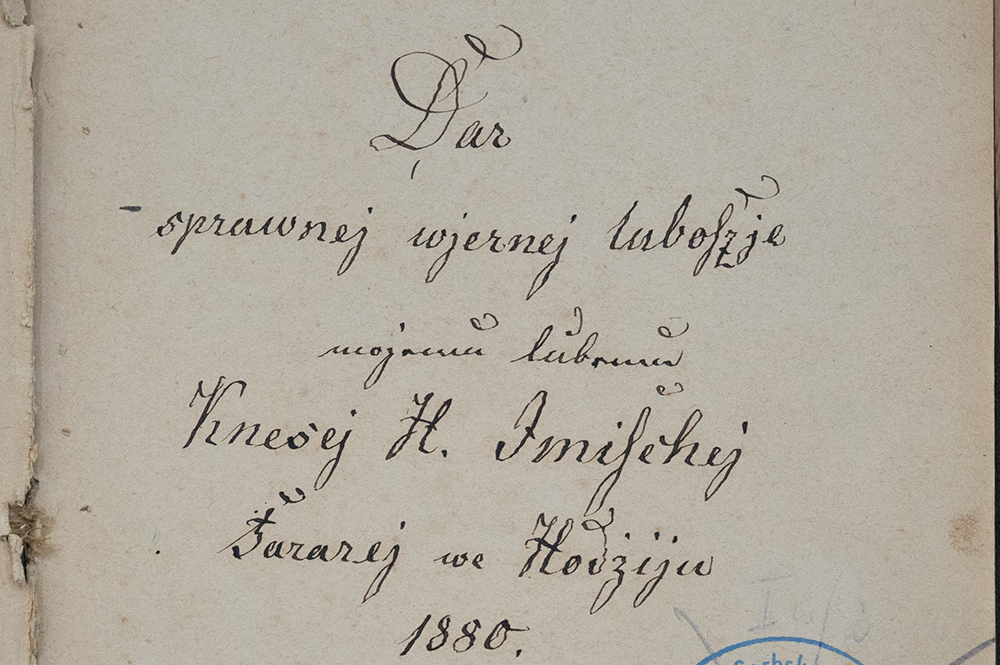 Dar
sprawnej wjernej luboſzje
mojemu lubemu
Knesej H. Imiſchej
Fararej we Hodžiju
1880.